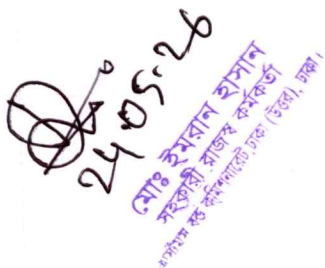 24.05.26
মোঃ ইমরান হাসান
সহকারী রাজস্ব কর্মকর্তা
কাস্টমস বন্ড কমিশনারেট, ঢাকা (উত্তর), ঢাকা।